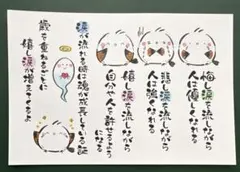 悔し涙を流しながら
人は優しくなれる
悲し涙を流しながら
人は強くなれる
嬉し涙を流しながら
自分や人を許せるように
になる
涙が流れる時に魂が成長している証
歳を重ねるごとに
嬉し涙が増えてくるよ